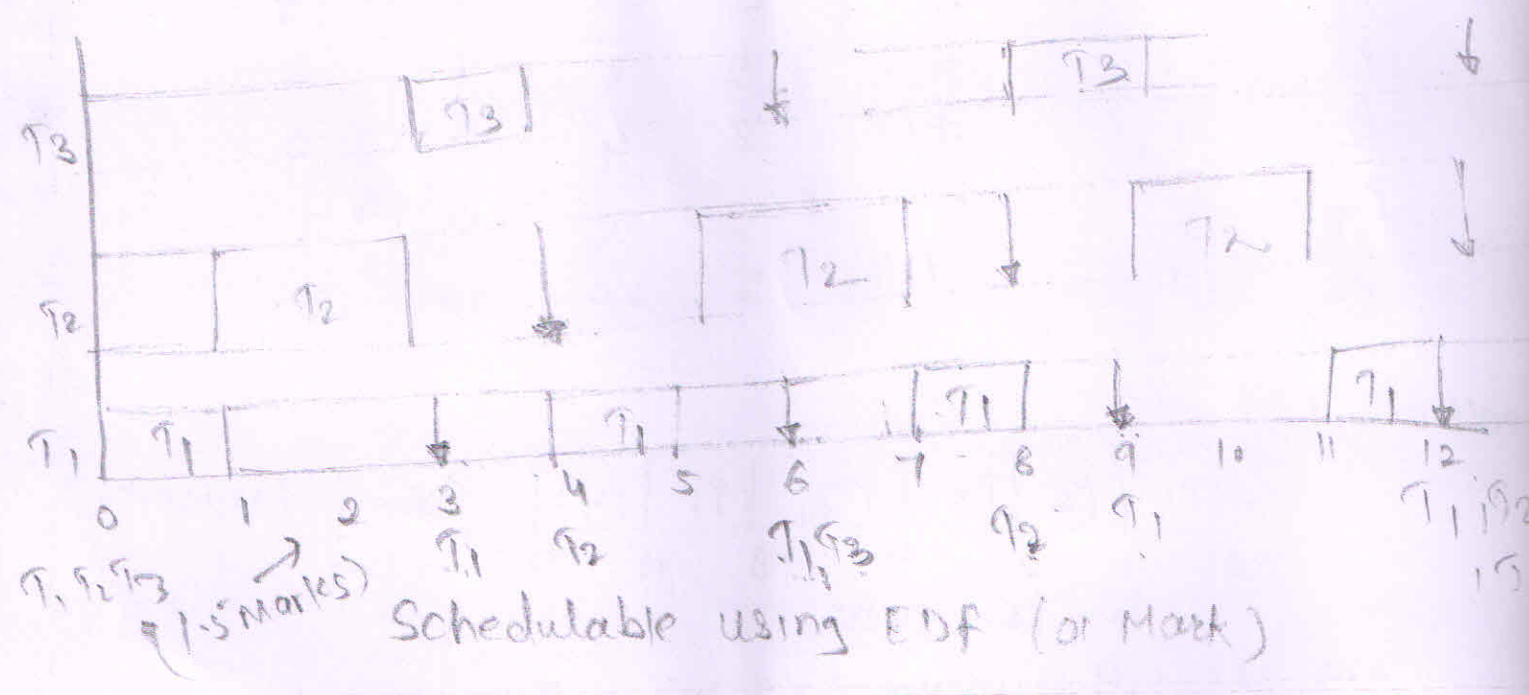 T3 T3 T3
T2 T2 T2 T2
T1 T1 T1 T1 T1
0 1 2 3 4 5 6 7 8 9 10 11 12
T1 T2 T3 T1 T2 T1, T3 T2 T1 T1, T2
(1.5 Marks)
Schedulable using EDF (01 Mark)